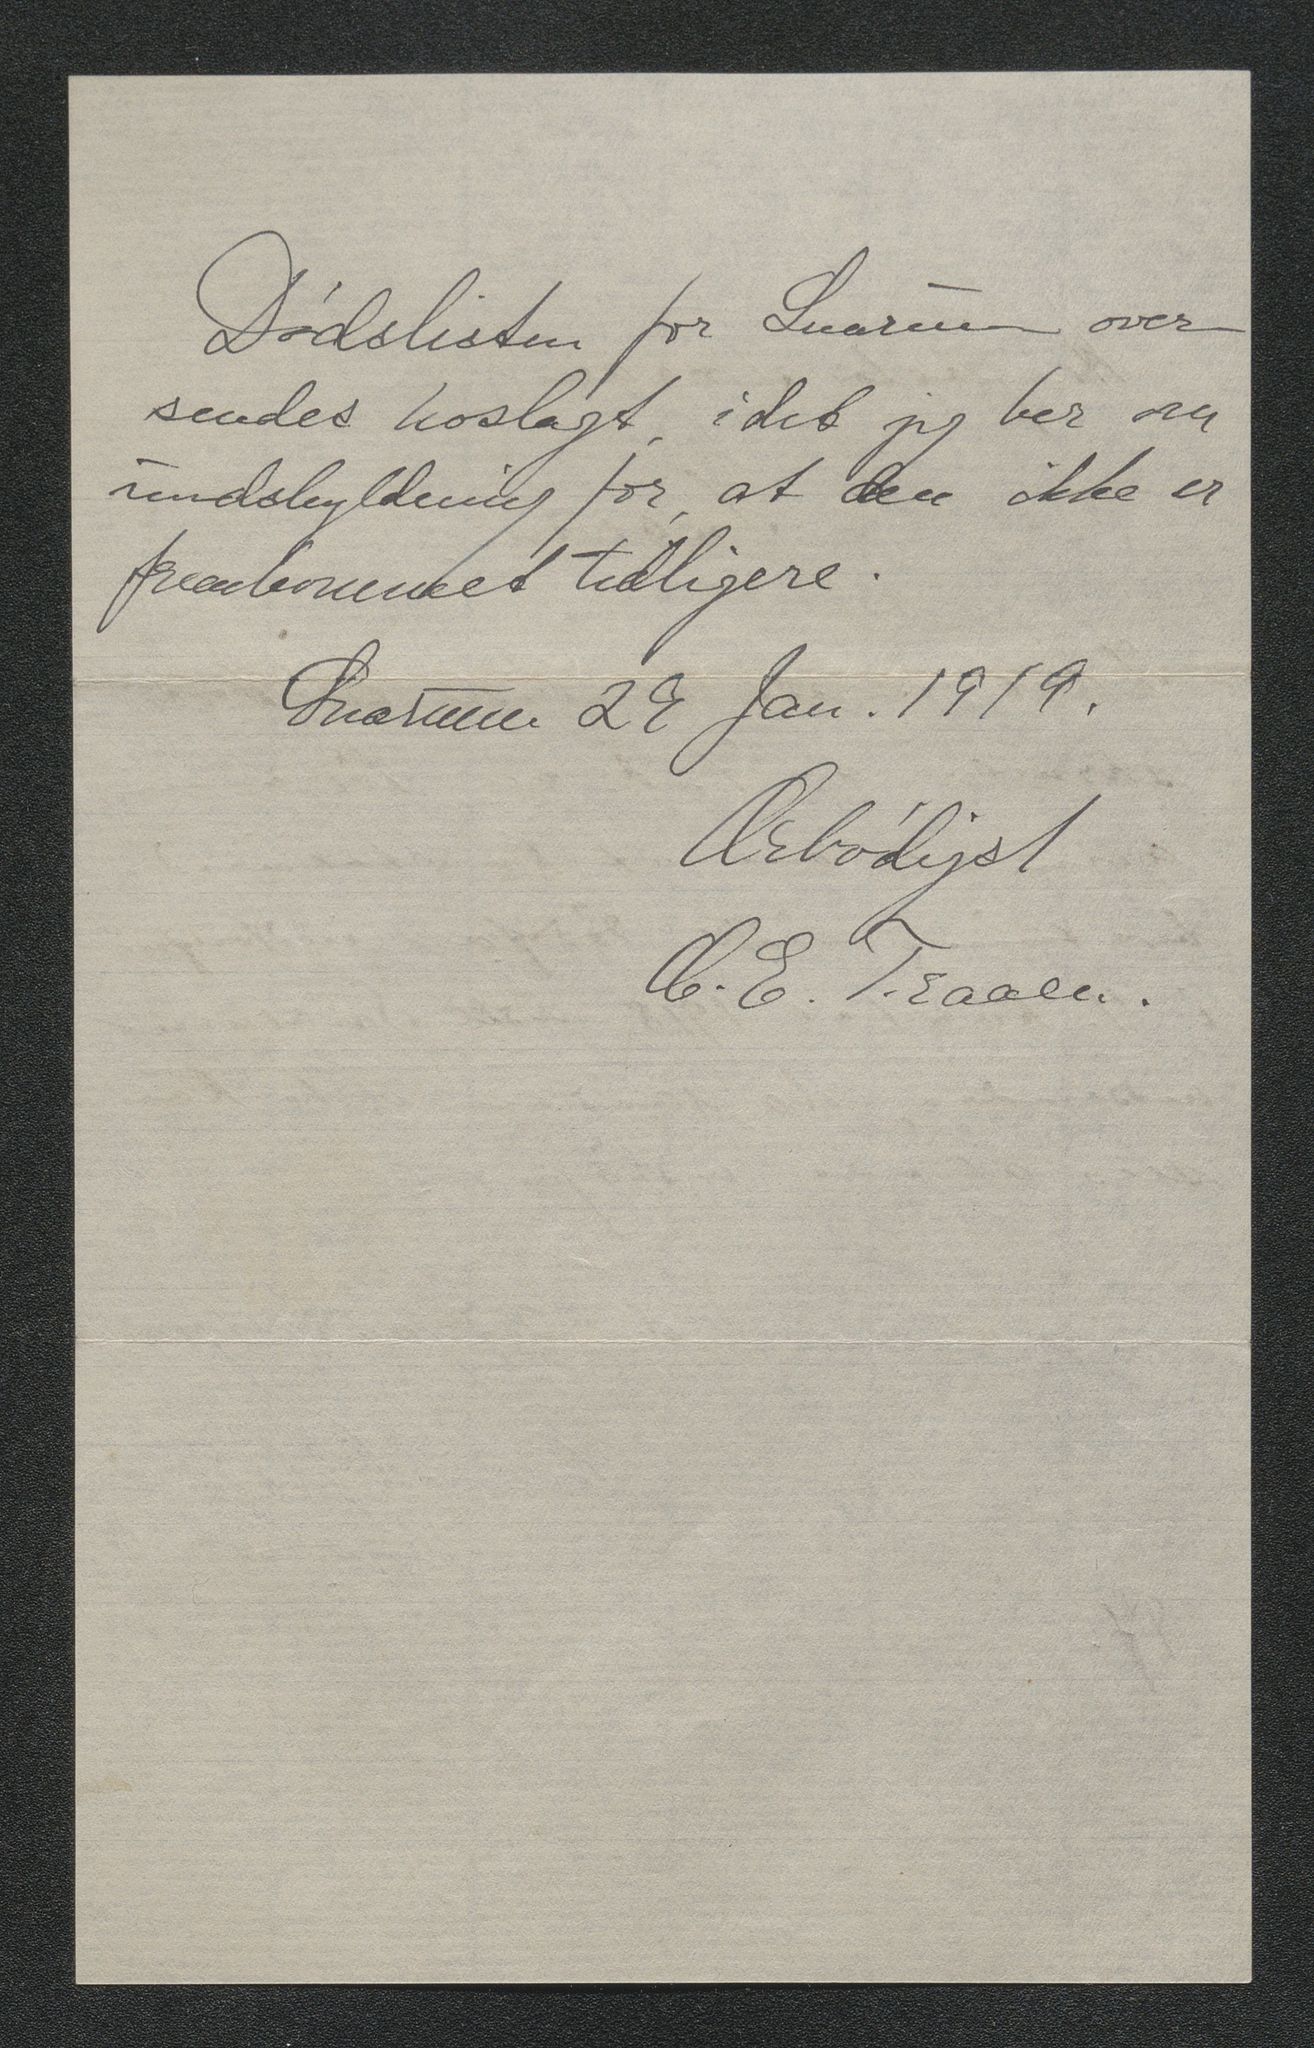 Dødslisten for Snarum over
sendes hoslagt, idet jeg ber om
undskyldning for, at den ikke er
fremkommet tidligere.
Snarum 28 Jan. 1919.
Ærbødigst
O. E. Traaen.